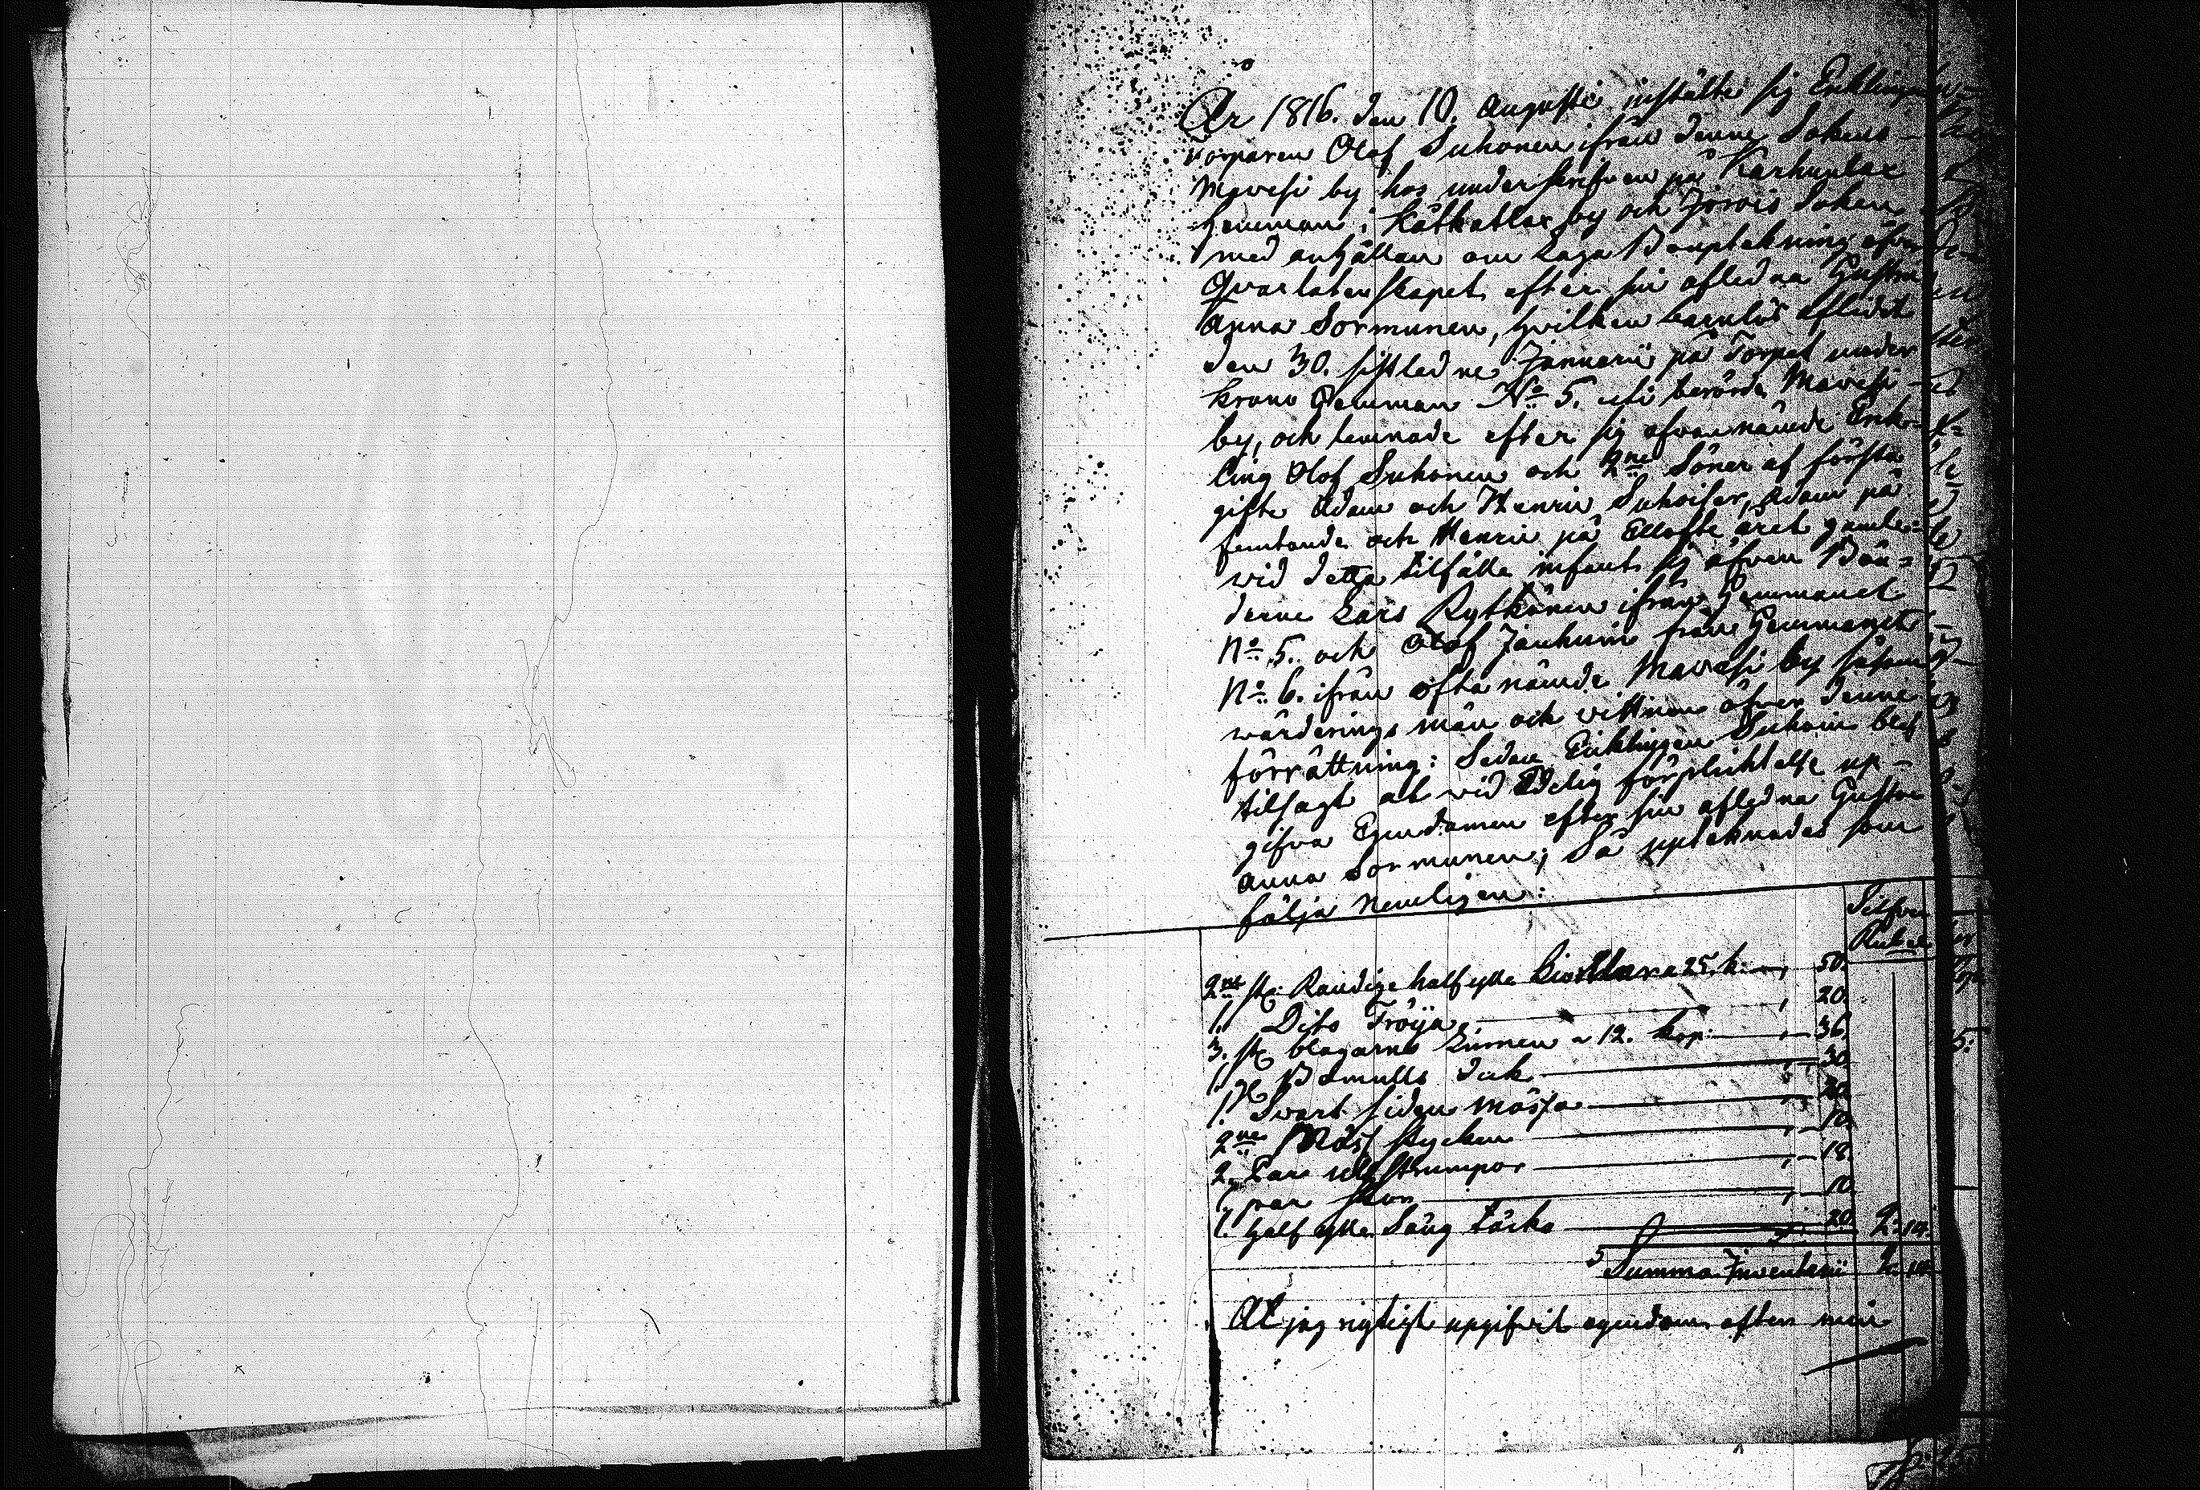 År 1816. den 10. Augusti instälte sig Enklingen
torparen Olof Suhonen ifrån denne Sokens
Mavesi by hos underskrifven på Karhunlax
hemman i Kätkatlax by och Jorois Soken
med anhållan om Laga Bouptekning öfver
Qvarlatenskapet efter sin afledna Hustru
Anna Sormunen, hvilken barnlös aflidit
den 30. sistledne Januarii på Torpet under
Krono Hemman No 5. uti berörde Mavesi
by, och lemnade efter sig ofvannämde Enk-
ling Olof Suhonen och 2ne Söner af första
gifte Adam och Henric Suhoiser, Adam på
femtonde och Henric på Ellofte året gamle
vid detta tilfälle infant sig äfven Bön-
derne Lars Rytkönen ifrån Hemmanet
No 5. och Olof Janhuin från Hemmanet
No 6. ifrån ofta nämde Mavesi by såsom
wärderings män och vittnen öfver denne
förrättning: Sedan Enklingen Suhoin blef
tilsagt at vid Edelig förplichtelse up-
gifva Egendomen efter sin afledna Hustru
Anna Sormunen; Så uptecknades som
följa Nemligen:
Silfver
Rubel
2ne st: Randige halfylle Kiortlar a 25. k: 50.
1. Dito Tröÿa 20.
3. st blagarns Linnen a 12. kop: 36.
1. st Bomulls duk 30.
1. st Svart siden mössa 20.
2ne Möss stycken 10.
2. Par ull strumpor 18.
1. par skor 10.
1. half ylle Säng Täcke 20. 2. 14.
Summa Inventarii 2. 14.
At jag rigtigt upgifvit egendom efter min